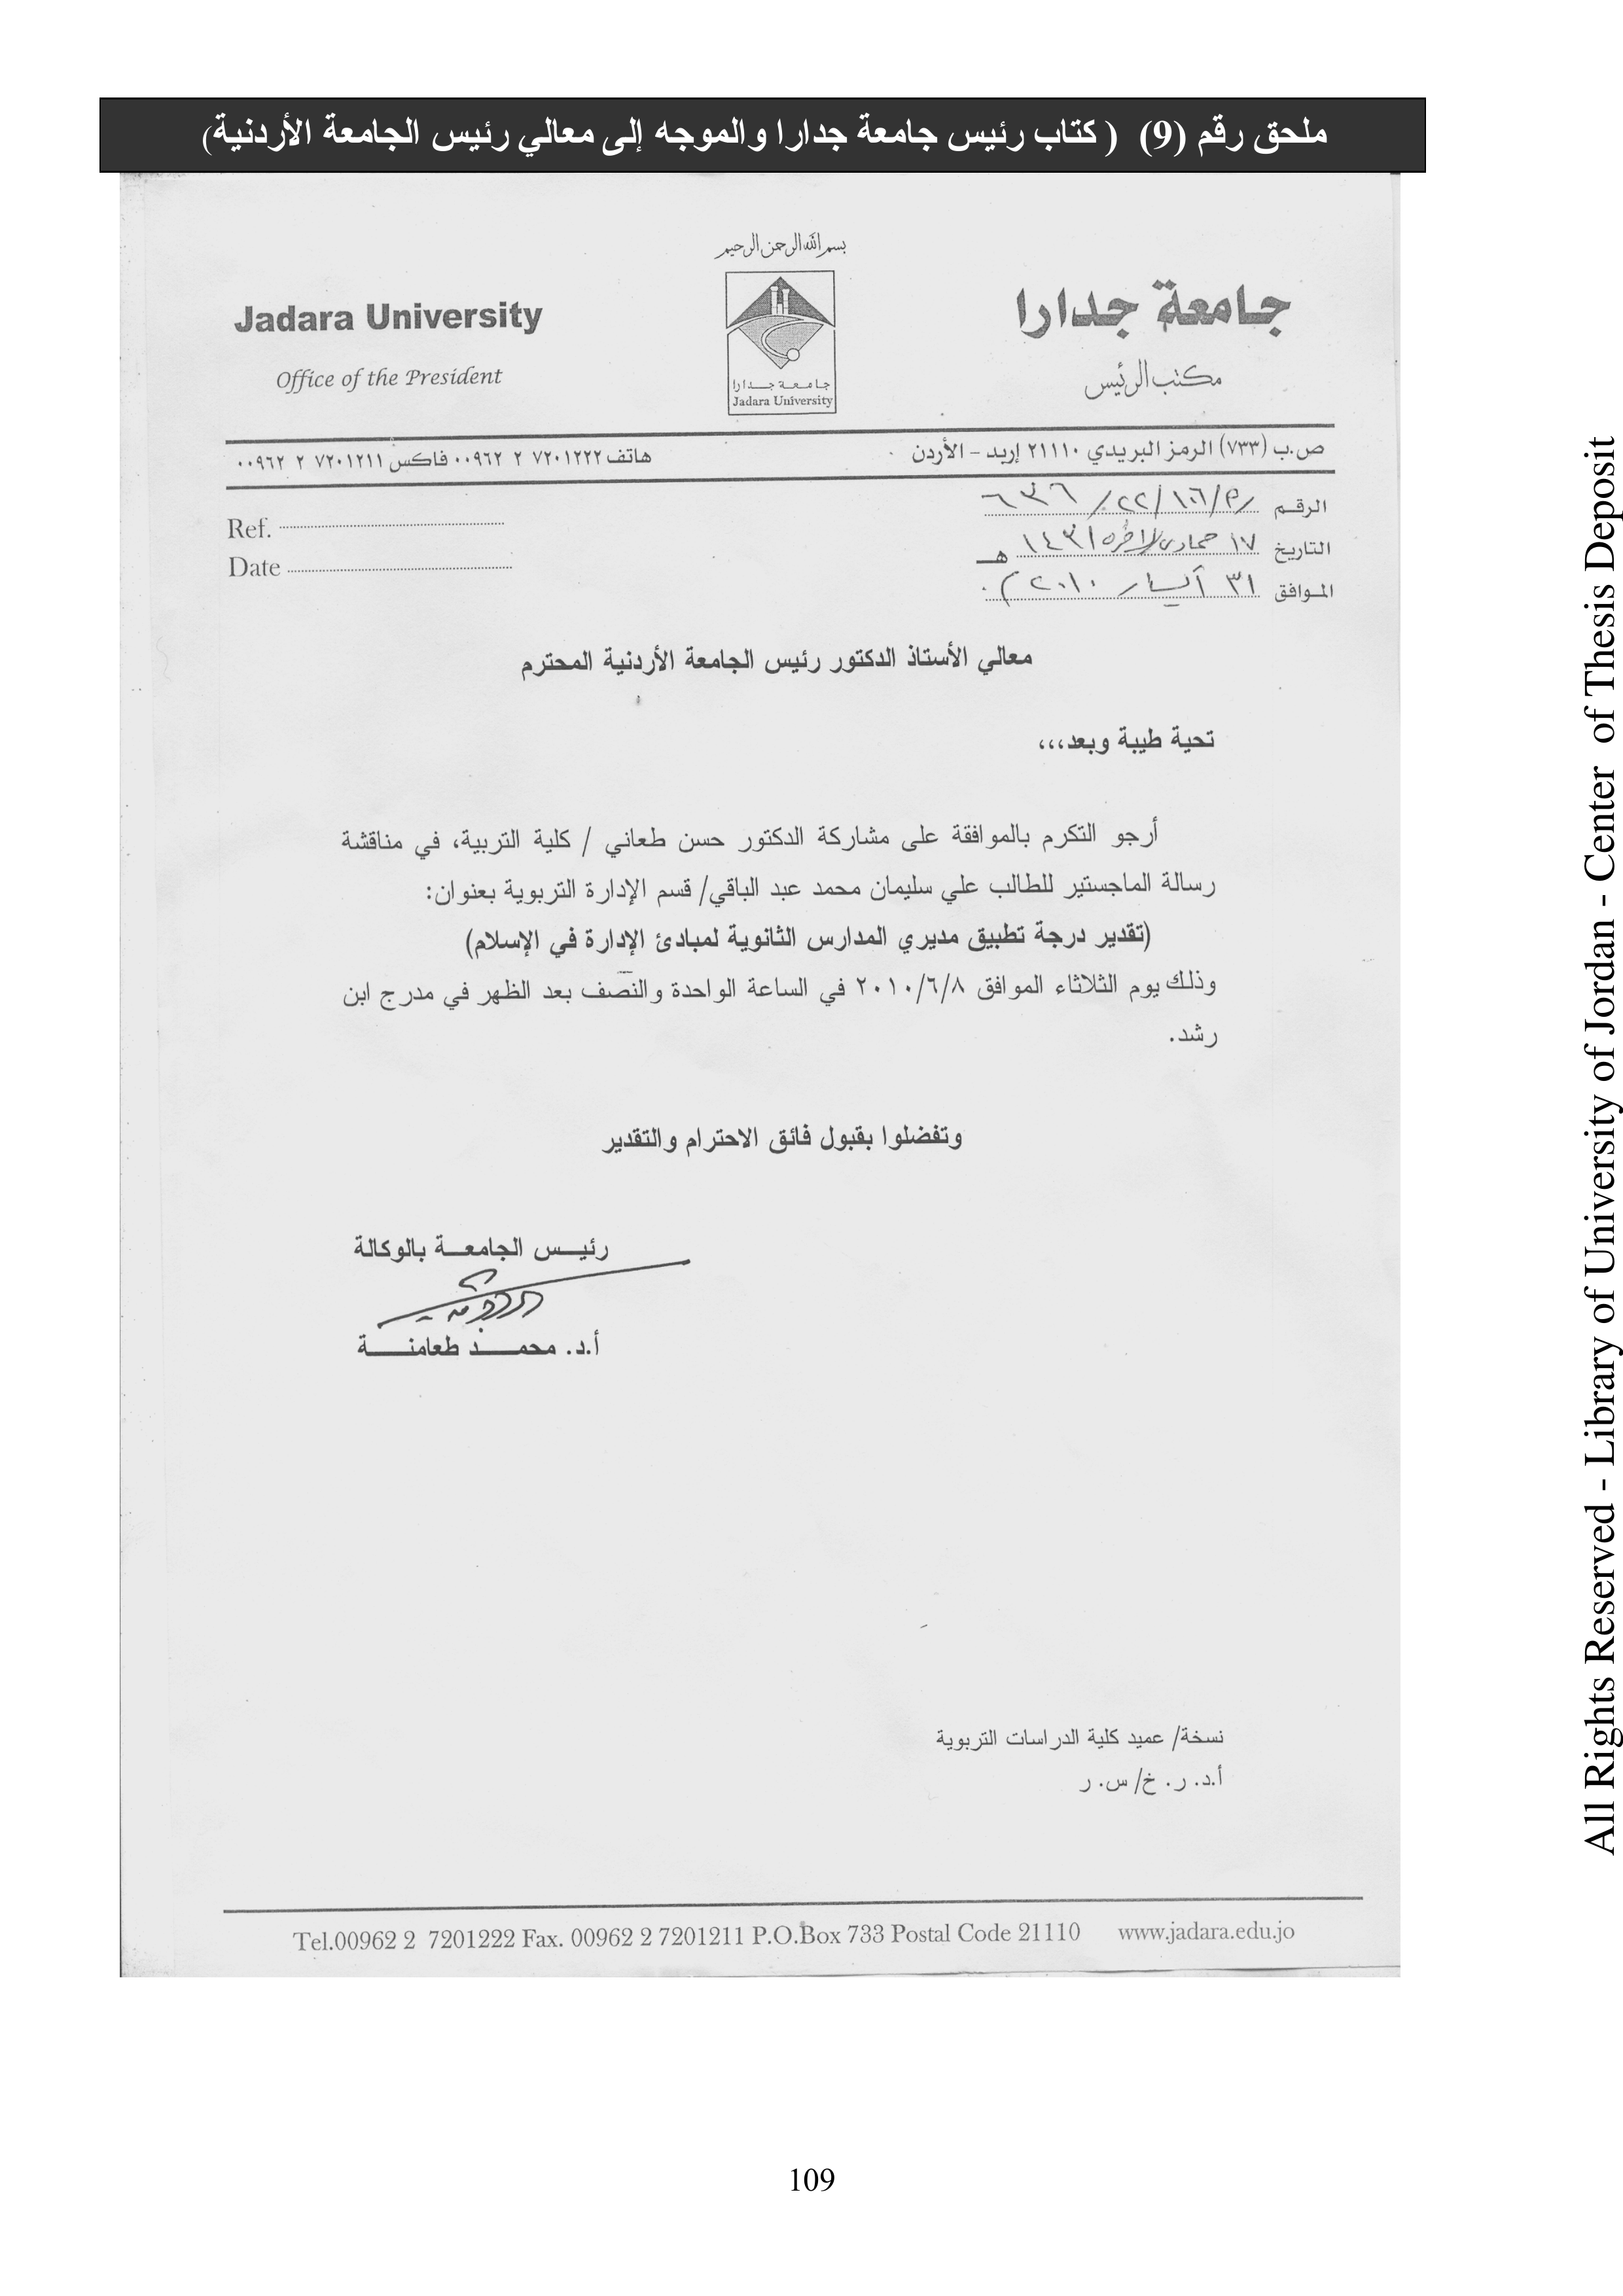 ملحق رقم (9) ( كتاب رئيس جامعة جدارا والموجه إلى معالي رئيس الجامعة الأردنية)
بسم الله الرحمن الرحيم
جامعة جدارا
Jadara University
مكتب الرئيس
Office of the President
جامعة جدارا
Jadara University
ص.ب (٧٣٣) الرمز البريدي ٢١١١٠ إربد - الأردن
هاتف ٧٢٠١٢٢٢ ٢ ٠٠٩٦٢ فاكس ٧٢٠١٢١١ ٢ ٠٠٩٦٢
الرقم
التاريخ ١٧ جمادى الآخرة ١٤٣١ هـ
الموافق ٣١ أيار ٢٠١٠ م
Ref.
Date
معالي الأستاذ الدكتور رئيس الجامعة الأردنية المحترم
تحية طيبة وبعد،،،
أرجو التكرم بالموافقة على مشاركة الدكتور حسن طعاني / كلية التربية، في مناقشة
رسالة الماجستير للطالب علي سليمان محمد عبد الباقي/ قسم الإدارة التربوية بعنوان:
(تقدير درجة تطبيق مديري المدارس الثانوية لمبادئ الإدارة في الإسلام)
وذلك يوم الثلاثاء الموافق ٢٠١٠/٦/٨ في الساعة الواحدة والنصف بعد الظهر في مدرج ابن
رشد.
وتفضلوا بقبول فائق الاحترام والتقدير
رئيس الجامعة بالوكالة
أ.د. محمد طعامنة
نسخة/ عميد كلية الدراسات التربوية
أ.د. ر. خ/ س. ر
Tel.00962 2 7201222 Fax. 00962 2 7201211 P.O.Box 733 Postal Code 21110 www.jadara.edu.jo
109
All Rights Reserved - Library of University of Jordan - Center of Thesis Deposit